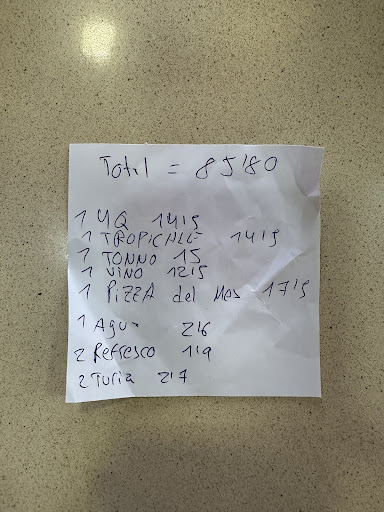 Total = 85'80
1 4Q 14'5
1 TROPICALE 14'5
1 TONNO 15
1 VINO 12'5
1 PIZZA del Mes 17'5
1 Agua 2'6
2 Refresco 1'9
2 Turia 2'7